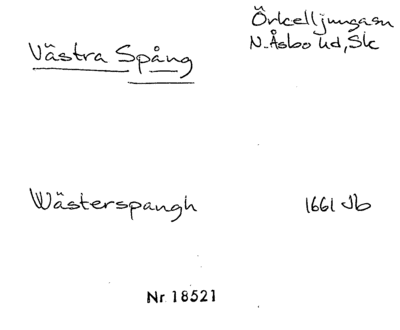 Örkelljunga sn
N. Åsbo hd, Sk
Västra Spång
Wästerspangh 1661 Jb
Nr 18521